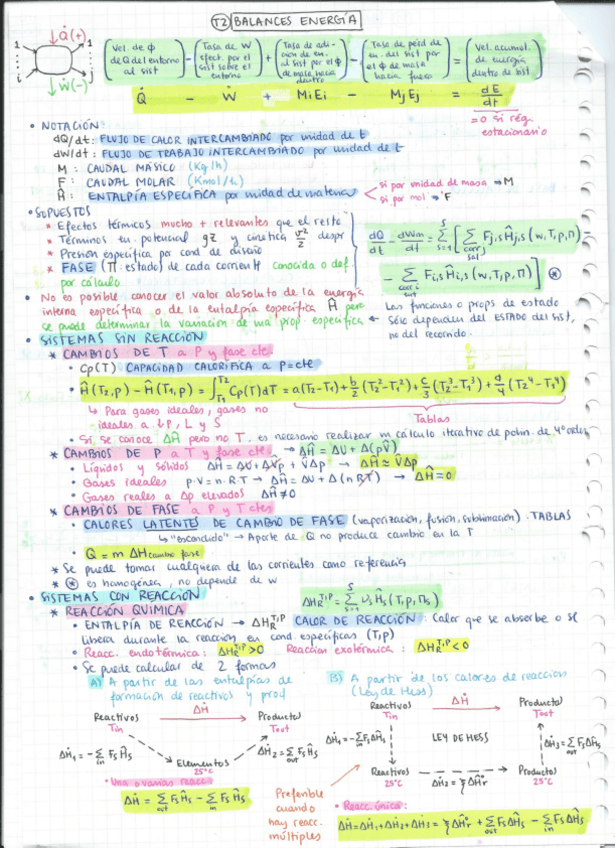 T2 BALANCES ENERGÍA
Q̇(+)
Ẇ(-)
1 1
Vel. de Φ de Q del entorno al sist
Tasa de W efect. por el sist sobre el entorno
Tasa de adición de en. al sist por el Φ de masa hacia dentro
Tasa de perd de en. del sist por el Φ de masa hacia fuera
Vel. acumul. de energía dentro de sist
Q̇ - Ẇ + MiEi - MjEj = dE/dt
= 0 si rég. estacionario
• NOTACIÓN:
dQ/dt: FLUJO DE CALOR INTERCAMBIADO por unidad de t
dW/dt: FLUJO DE TRABAJO INTERCAMBIADO por unidad de t
M: CAUDAL MÁSICO (Kg/h)
F: CAUDAL MOLAR (Kmol/h)
Ĥ: ENTALPÍA ESPECÍFICA por unidad de materia
si por unidad de masa → M
si por mol → F
• SUPUESTOS
* Efectos térmicos mucho + relevantes que el resto
* Términos en. potencial gz y cinética v²/2 despr
* Presión específica por cond de diseño
* FASE (Π estado) de cada corriente conocida o def por cálculo
dQ/dt - dWm/dt = Σ s=1 S [ Σ corr j sal Fj,s Ĥj,s (w,T,p,Π)
- Σ corr i ent Fi,s Ĥi,s (w,T,p,Π) ] ⊛
• No es posible conocer el valor absoluto de la energía
interna específica o de la entalpía específica Ĥ pero
se puede determinar la variación de una prop. específica ←
Las funciones o props de estado
sólo dependen del ESTADO del sist,
no del recorrido.
• SISTEMAS SIN REACCIÓN
* CAMBIOS DE T a P y fase cte.
• Cp(T) CAPACIDAD CALORÍFICA a P=cte
• Ĥ(T2,p) - Ĥ(T1,p) = ∫T1 T2 Cp(T)dT = a(T2-T1) + b/2 (T2²-T1²) + c/3 (T2³-T1³) + d/4 (T2⁴-T1⁴)
↳ Para gases ideales, gases no
ideales a ↓P, L y S
Tablas
• Si se conoce ΔĤ pero no T. es necesario realizar un cálculo iterativo de polin. de 4º orden
* CAMBIOS DE P a T y fase cte. → ΔĤ = ΔU + Δ(pV̂)
• Líquidos y sólidos ΔĤ = ΔU + ΔV̂p + V̂Δp → ΔĤ ≈ V̂Δp
• Gases ideales p·V = n·R·T → ΔĤ = ΔU + Δ(nRT) → ΔĤ = 0
• Gases reales a Δp elevados ΔĤ ≠ 0
* CAMBIOS DE FASE a P y T ctes
• CALORES LATENTES DE CAMBIO DE FASE (vaporización, fusión, sublimación). TABLAS
↳ "escondido" → Aporte de Q no produce cambio en la T
• Q = m ΔH cambio fase
* Se puede tomar cualquiera de las corrientes como referencia
* ⊛ es homogénea, no depende de w
• SISTEMAS CON REACCIÓN
ΔHR T,P = Σ s=1 S νs Ĥs (T,p,Πs)
* REACCIÓN QUÍMICA
• ENTALPÍA DE REACCIÓN → ΔHR T,P CALOR DE REACCIÓN: Calor que se absorbe o se
libera durante la reacción en cond. específicas (T,p)
• Reacc. endotérmica: ΔHR T,P > 0 Reacción exotérmica: ΔHR T,P < 0
• Se puede calcular de 2 formas
A) A partir de las entalpías de
formación de reactivos y prod
Reactivos Tin
ΔḢ
Productos Tout
ΔḢ1 = -Σ in Fs Ĥs
Elementos 25°C
ΔḢ2 = Σ out Fs Ĥs
• Una o varias reacc
ΔḢ = Σ out Fs Ĥs - Σ in Fs Ĥs
B) A partir de los calores de reacción
(Ley de Hess)
Reactivos Tin
ΔḢ
Productos Tout
ΔḢ1 = -Σ in Fs ΔĤs
LEY DE HESS
ΔḢ3 = Σ out Fs ΔĤs
Reactivos 25°C
ΔḢ2 = ξ ΔHr°
Productos 25°C
Preferible
cuando
hay reacc.
múltiples
• Reacc. única:
ΔḢ = ΔḢ1 + ΔḢ2 + ΔḢ3 = ξ ΔHr° + Σ out Fs ΔĤs - Σ in Fs ΔĤs